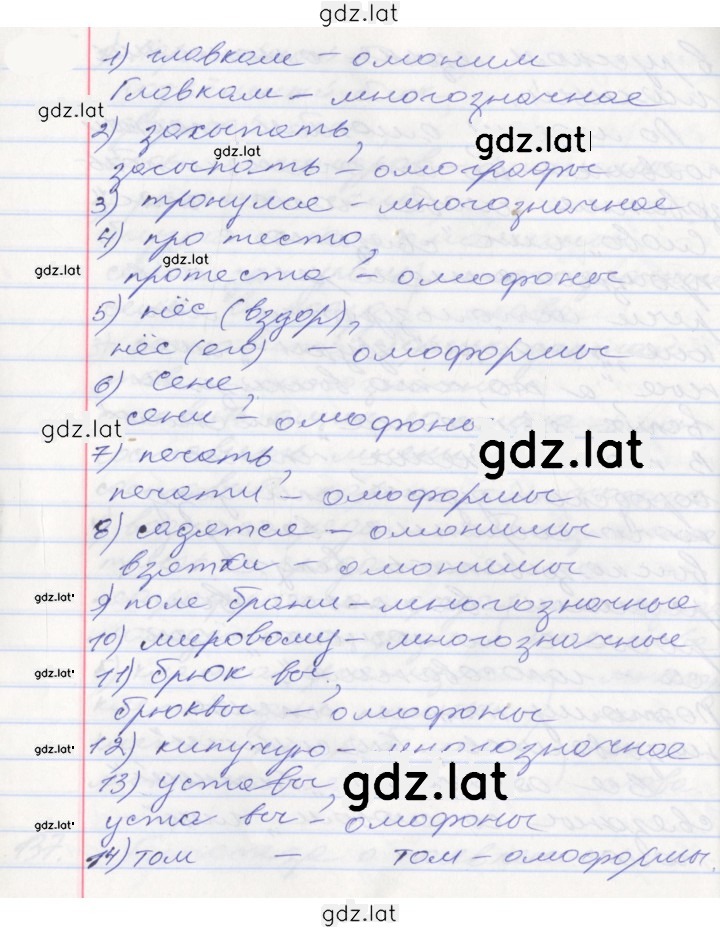 gdz.lat
1) главкам – омоним
Главкам – многозначное
gdz.lat
2) захыпать,
gdz.lat
gdz.lat
засыпать – омографы
3) тронулся – многозначное
4) про тесто,
gdz.lat
gdz.lat
протеста – омофоны
5) нёс (вздор),
нёс (его) – омоформы
6) Сене,
сени – омофоны
gdz.lat
gdz.lat
7) печать,
печати – омоформы
8) садятся – омонимы
взятки – омонимы
gdz.lat
9) поле брани – многозначные
10) мировому – многозначные
gdz.lat
11) брюк вы,
брюквы – омофоны
gdz.lat
12) кипучую – многозначное
13) уставы,
gdz.lat
gdz.lat
уста вы – омофоны
14) том – том – омоформы.
gdz.lat